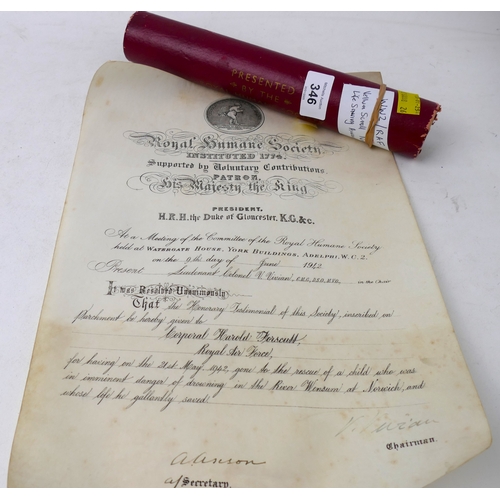 PRESENTED
BY THE
346
WW2/RAF
Life Saving
Royal Humane Society
INSTITUTED 1774.
Supported by Voluntary Contributions.
PATRON
His Majesty the King
PRESIDENT.
H.R.H. the Duke of Gloucester, K.G. &c.
At a Meeting of the Committee of the Royal Humane Society
held at WATERGATE HOUSE, YORK BUILDINGS, ADELPHI, W.C.2.
on the 9th day of June 1942
Present Lieutenant Colonel V. Vivian in the Chair
It was Resolved Unanimously
That the Honorary Testimonial of this Society, inscribed on
Parchment be hereby given to
Corporal Harold Forscutt,
Royal Air Force,
for having on the 21st May, 1942, gone to the rescue of a child who was
in imminent danger of drowning in the River Wensum at Norwich, and
whose life he gallantly saved.
V Vivian
Chairman.
A Anson
a/Secretary.